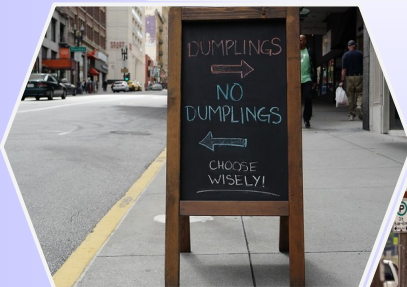 DUMPLINGS
NO
DUMPLINGS
CHOOSE
WISELY!